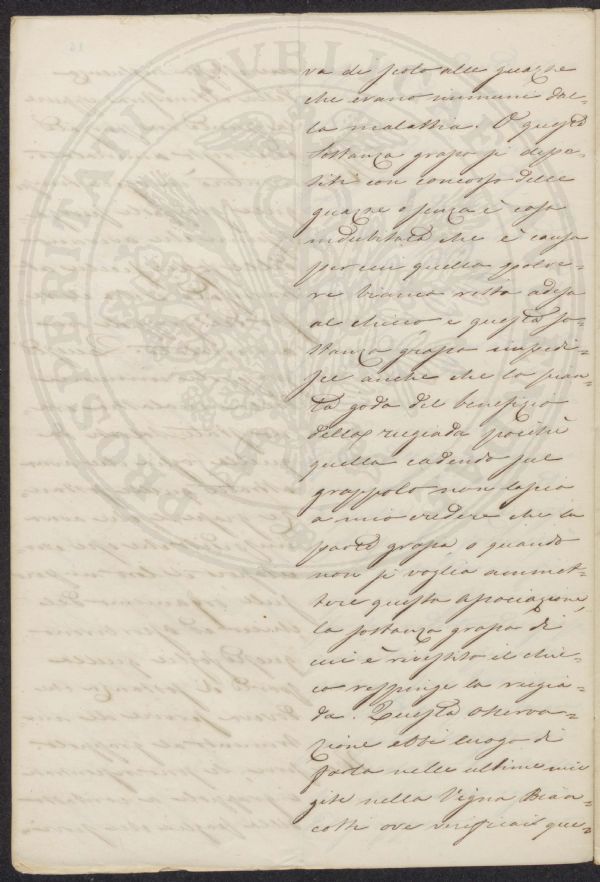 va di solo alle guazze
che erano immuni dal-
la malattia. O questa
sostanza grassa si depo-
siti con concorso delle
guazze o senza è cosa
indubitata che è causa
per cui quella polve-
re bianca resta adesa
al chicco, e questa so-
stanza grassa impedi-
sce anche che la pian-
ta goda del benefizio
della rugiada poiché
quella cadendo sul
grappolo non lascia
a mio credere che la
parte grassa, o quando
non si voglia ammet-
tere questa associazione,
la sostanza grassa di
cui è rivestito il chic-
co respinge la rugia-
da. Questa osserva-
zione ebbi luogo di
farla nelle ultime mie
gite nella Vigna Bian-
cotti ove verificai que-